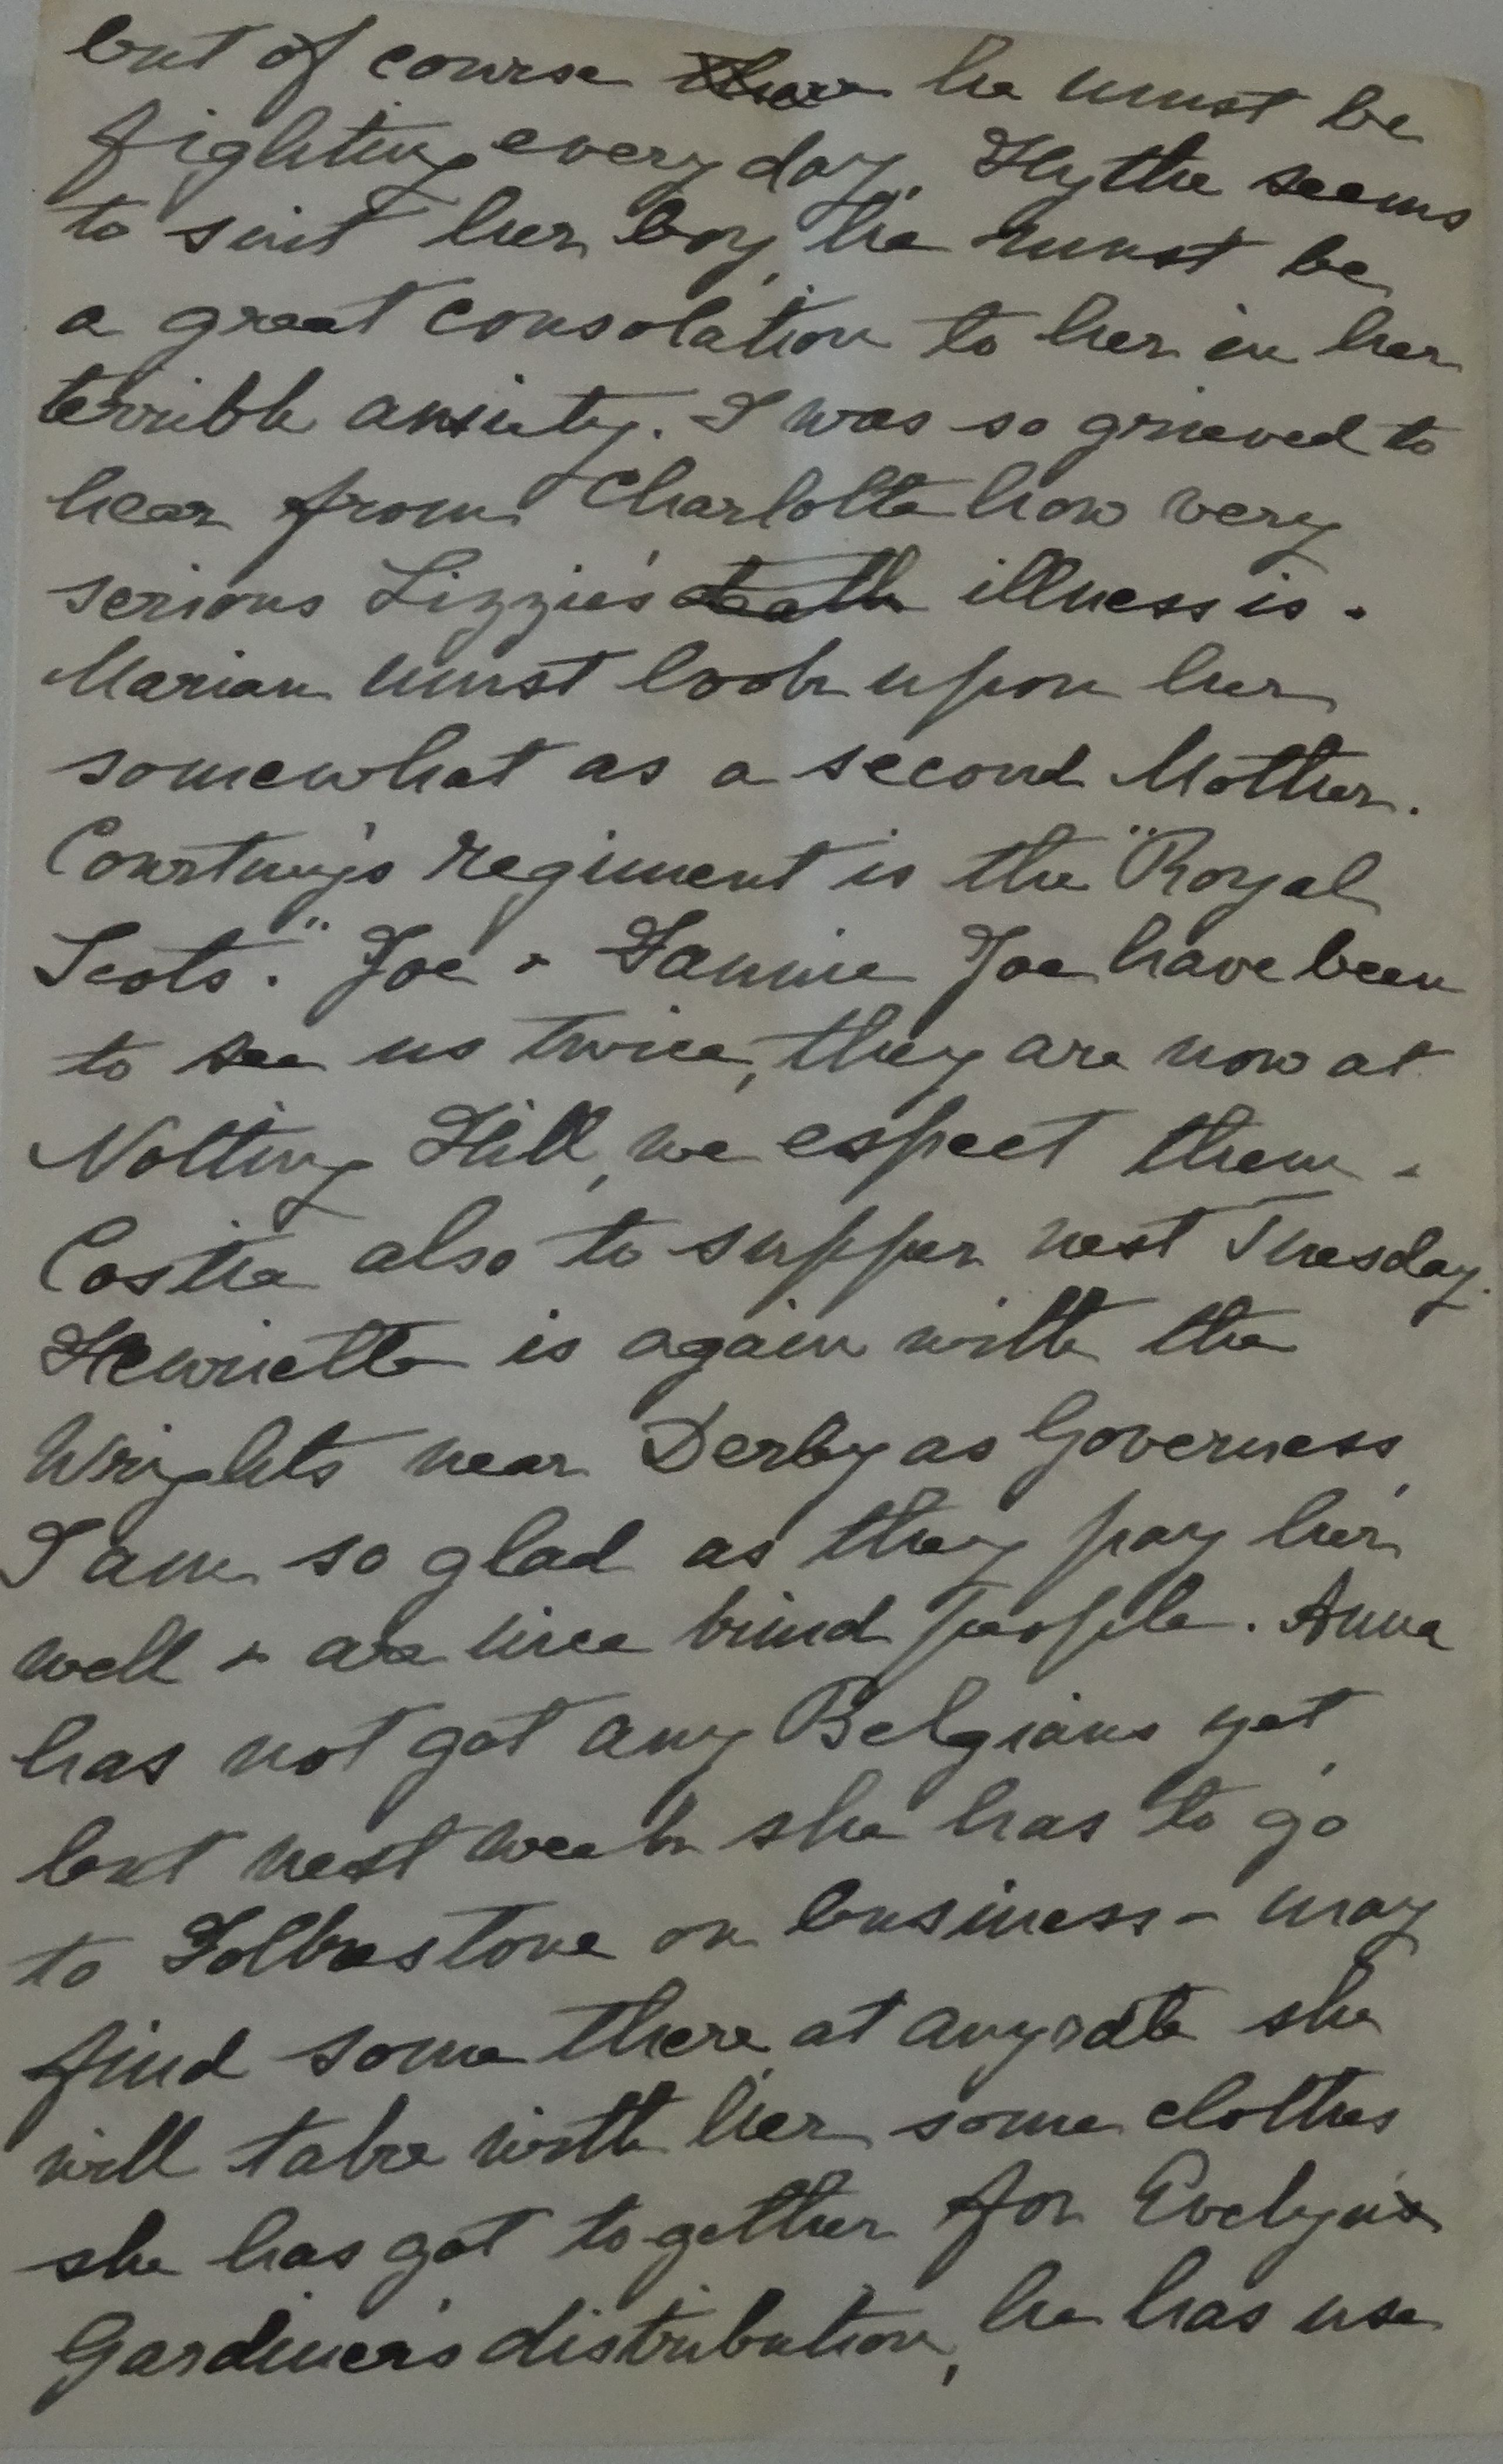 but of course ~~there~~ he must be
fighting every day. Hythe seems
to suit her boy, he must be
a great consolation to her in her
terrible anxiety. I was so grieved to
hear from Charlotte how very
serious Lizzie's ~~death~~ illness is.
Marian must look upon her
somewhat as a second Mother.
Courtney's regiment is the "Royal
Scots." Joe & Fannie Joe have been
to see us twice, they are now at
Notting Hill, we expect them &
Costie also to supper next Tuesday.
Henrietta is again with the
Wrights near Derby as Governess,
I am so glad as they pay her
well & are nice kind people. Anna
has not got any Belgians yet,
but next week she has to go
to Folkestone on business & may
find some there, at anyrate she
will take with her some clothes
she has got together for Evelyn
Gardiner's distribution, he has use